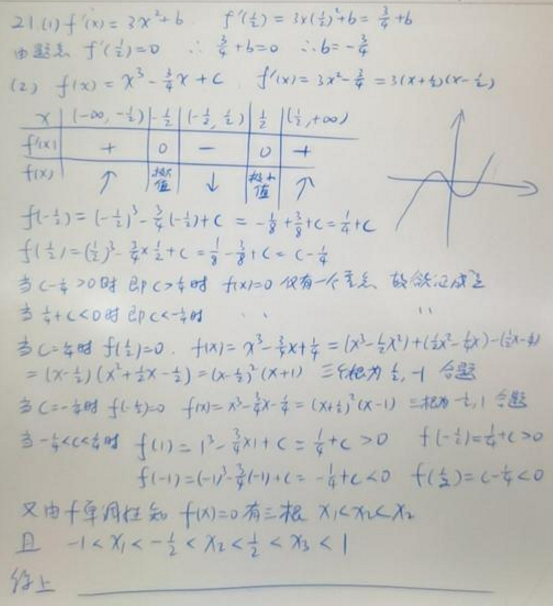 21.(1) f'(x)=3x²+b f'(½)=3×(½)²+b=¾+b
由题意 f'(½)=0 ∴ ¾+b=0 ∴b=-¾
(2) f(x)=x³-¾x+c f'(x)=3x²-¾=3(x+½)(x-½)
x (-∞,-½) -½ (-½,½) ½ (½,+∞)
f'(x) + 0 - 0 +
f(x) ↑ 极大值 ↓ 极小值 ↑
f(-½)=(-½)³-¾(-½)+c=-⅛+⅜+c=¼+c
f(½)=(½)³-¾×½+c=⅛-⅜+c=c-¼
当c-¼>0时 即c>¼时 f(x)=0 仅有一个零点 故欲证成立
当¼+c<0时 即c<-¼时 '' ''
当c=¼时 f(½)=0. f(x)=x³-¾x+¼=(x³-½x²)+(½x²-¼x)-(½x-¼)
=(x-½)(x²+½x-½)=(x-½)²(x+1) 三个根为½,-1 合题
当c=-¼时 f(-½)=0 f(x)=x³-¾x-¼=(x+½)²(x-1) 三根为-½,1 合题
当-¼<c<¼时 f(1)=1³-¾×1+c=¼+c>0 f(-½)=¼+c>0
f(-1)=(-1)³-¾(-1)+c=-¼+c<0 f(½)=c-¼<0
又由f单调性知 f(x)=0有三根 x₁<x₂<x₂
且 -1<x₁<-½<x₂<½<x₃<1
综上